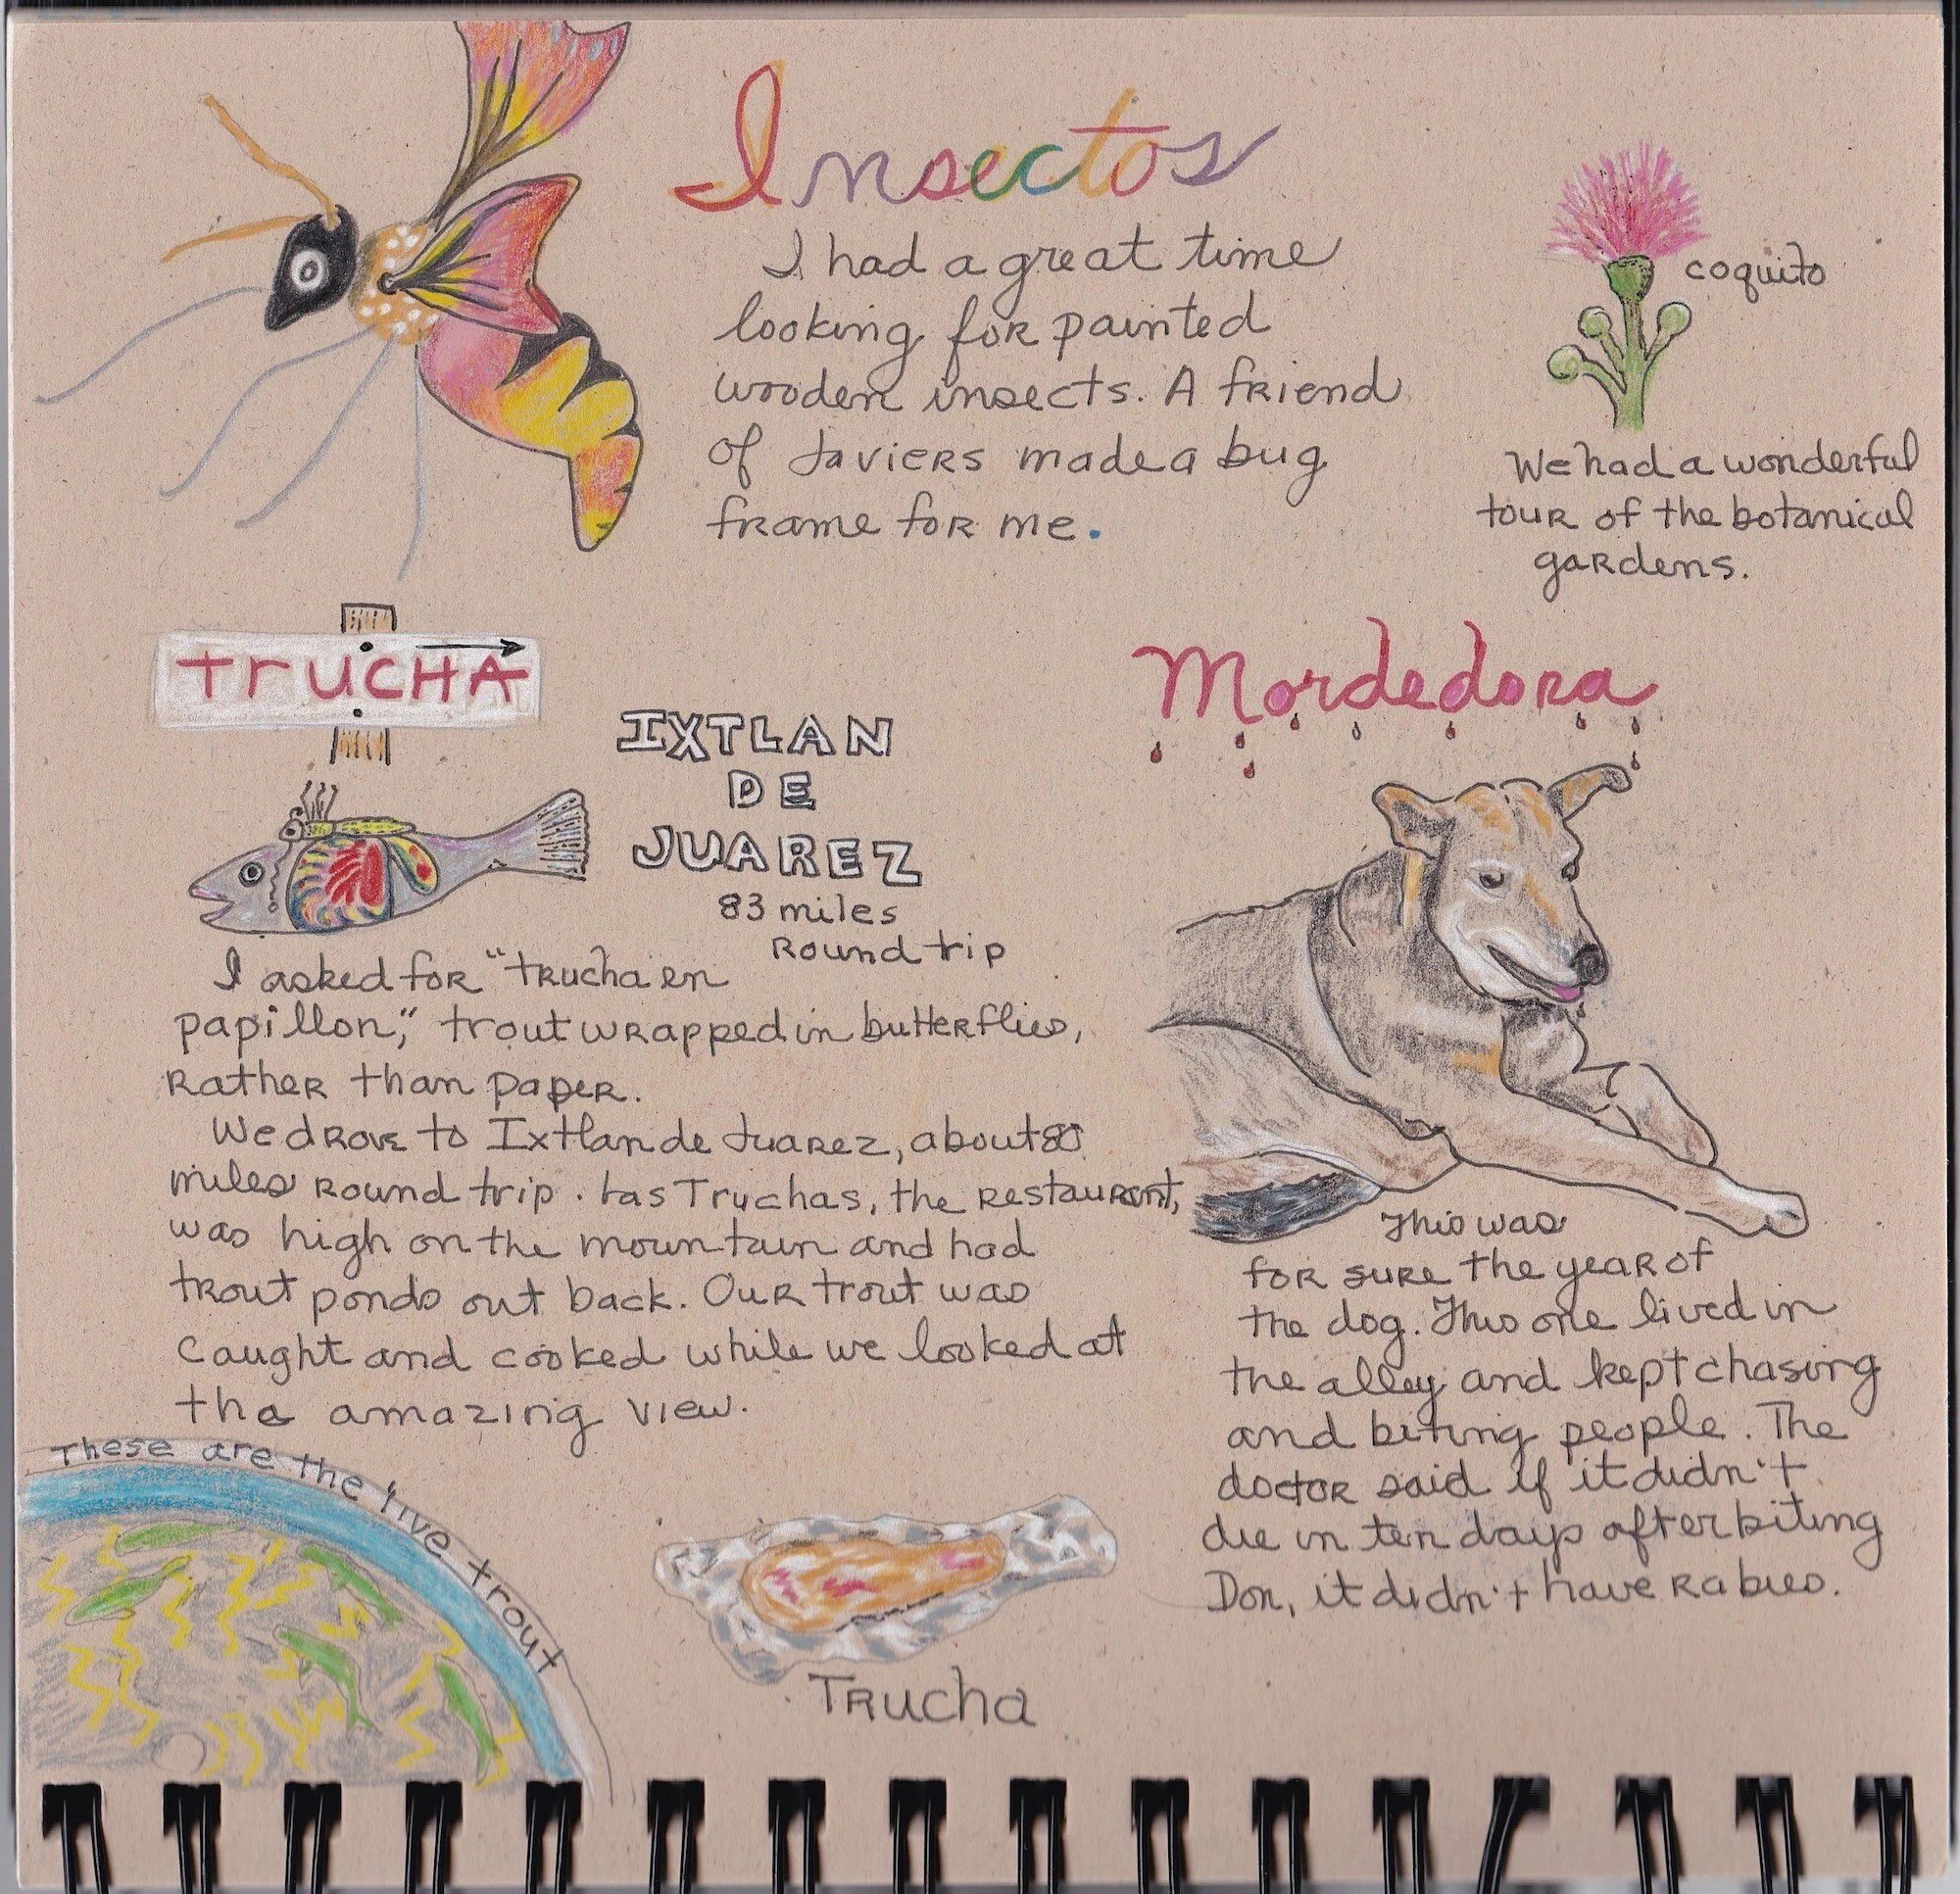 Insectos
I had a great time
looking for painted
wooden insects. A friend
of Javiers made a bug
frame for me.
coquito
We had a wonderful
tour of the botanical
gardens.
trucHA
IXTLAN
DE
JUAREZ
83 miles
Round trip
I asked for "trucha en
papillon," trout wrapped in butterflies,
rather than paper.
We drove to Ixtlan de Juarez, about 80
miles round trip. Las Truchas, the restaurant,
was high on the mountain and had
trout ponds out back. Our trout was
caught and cooked while we looked at
the amazing view.
These are the live trout
Trucha
Mordedora
This was
for sure the year of
the dog. This one lived in
the alley and kept chasing
and biting people. The
doctor said if it didn't
die in ten days after biting
Don, it didn't have rabies.